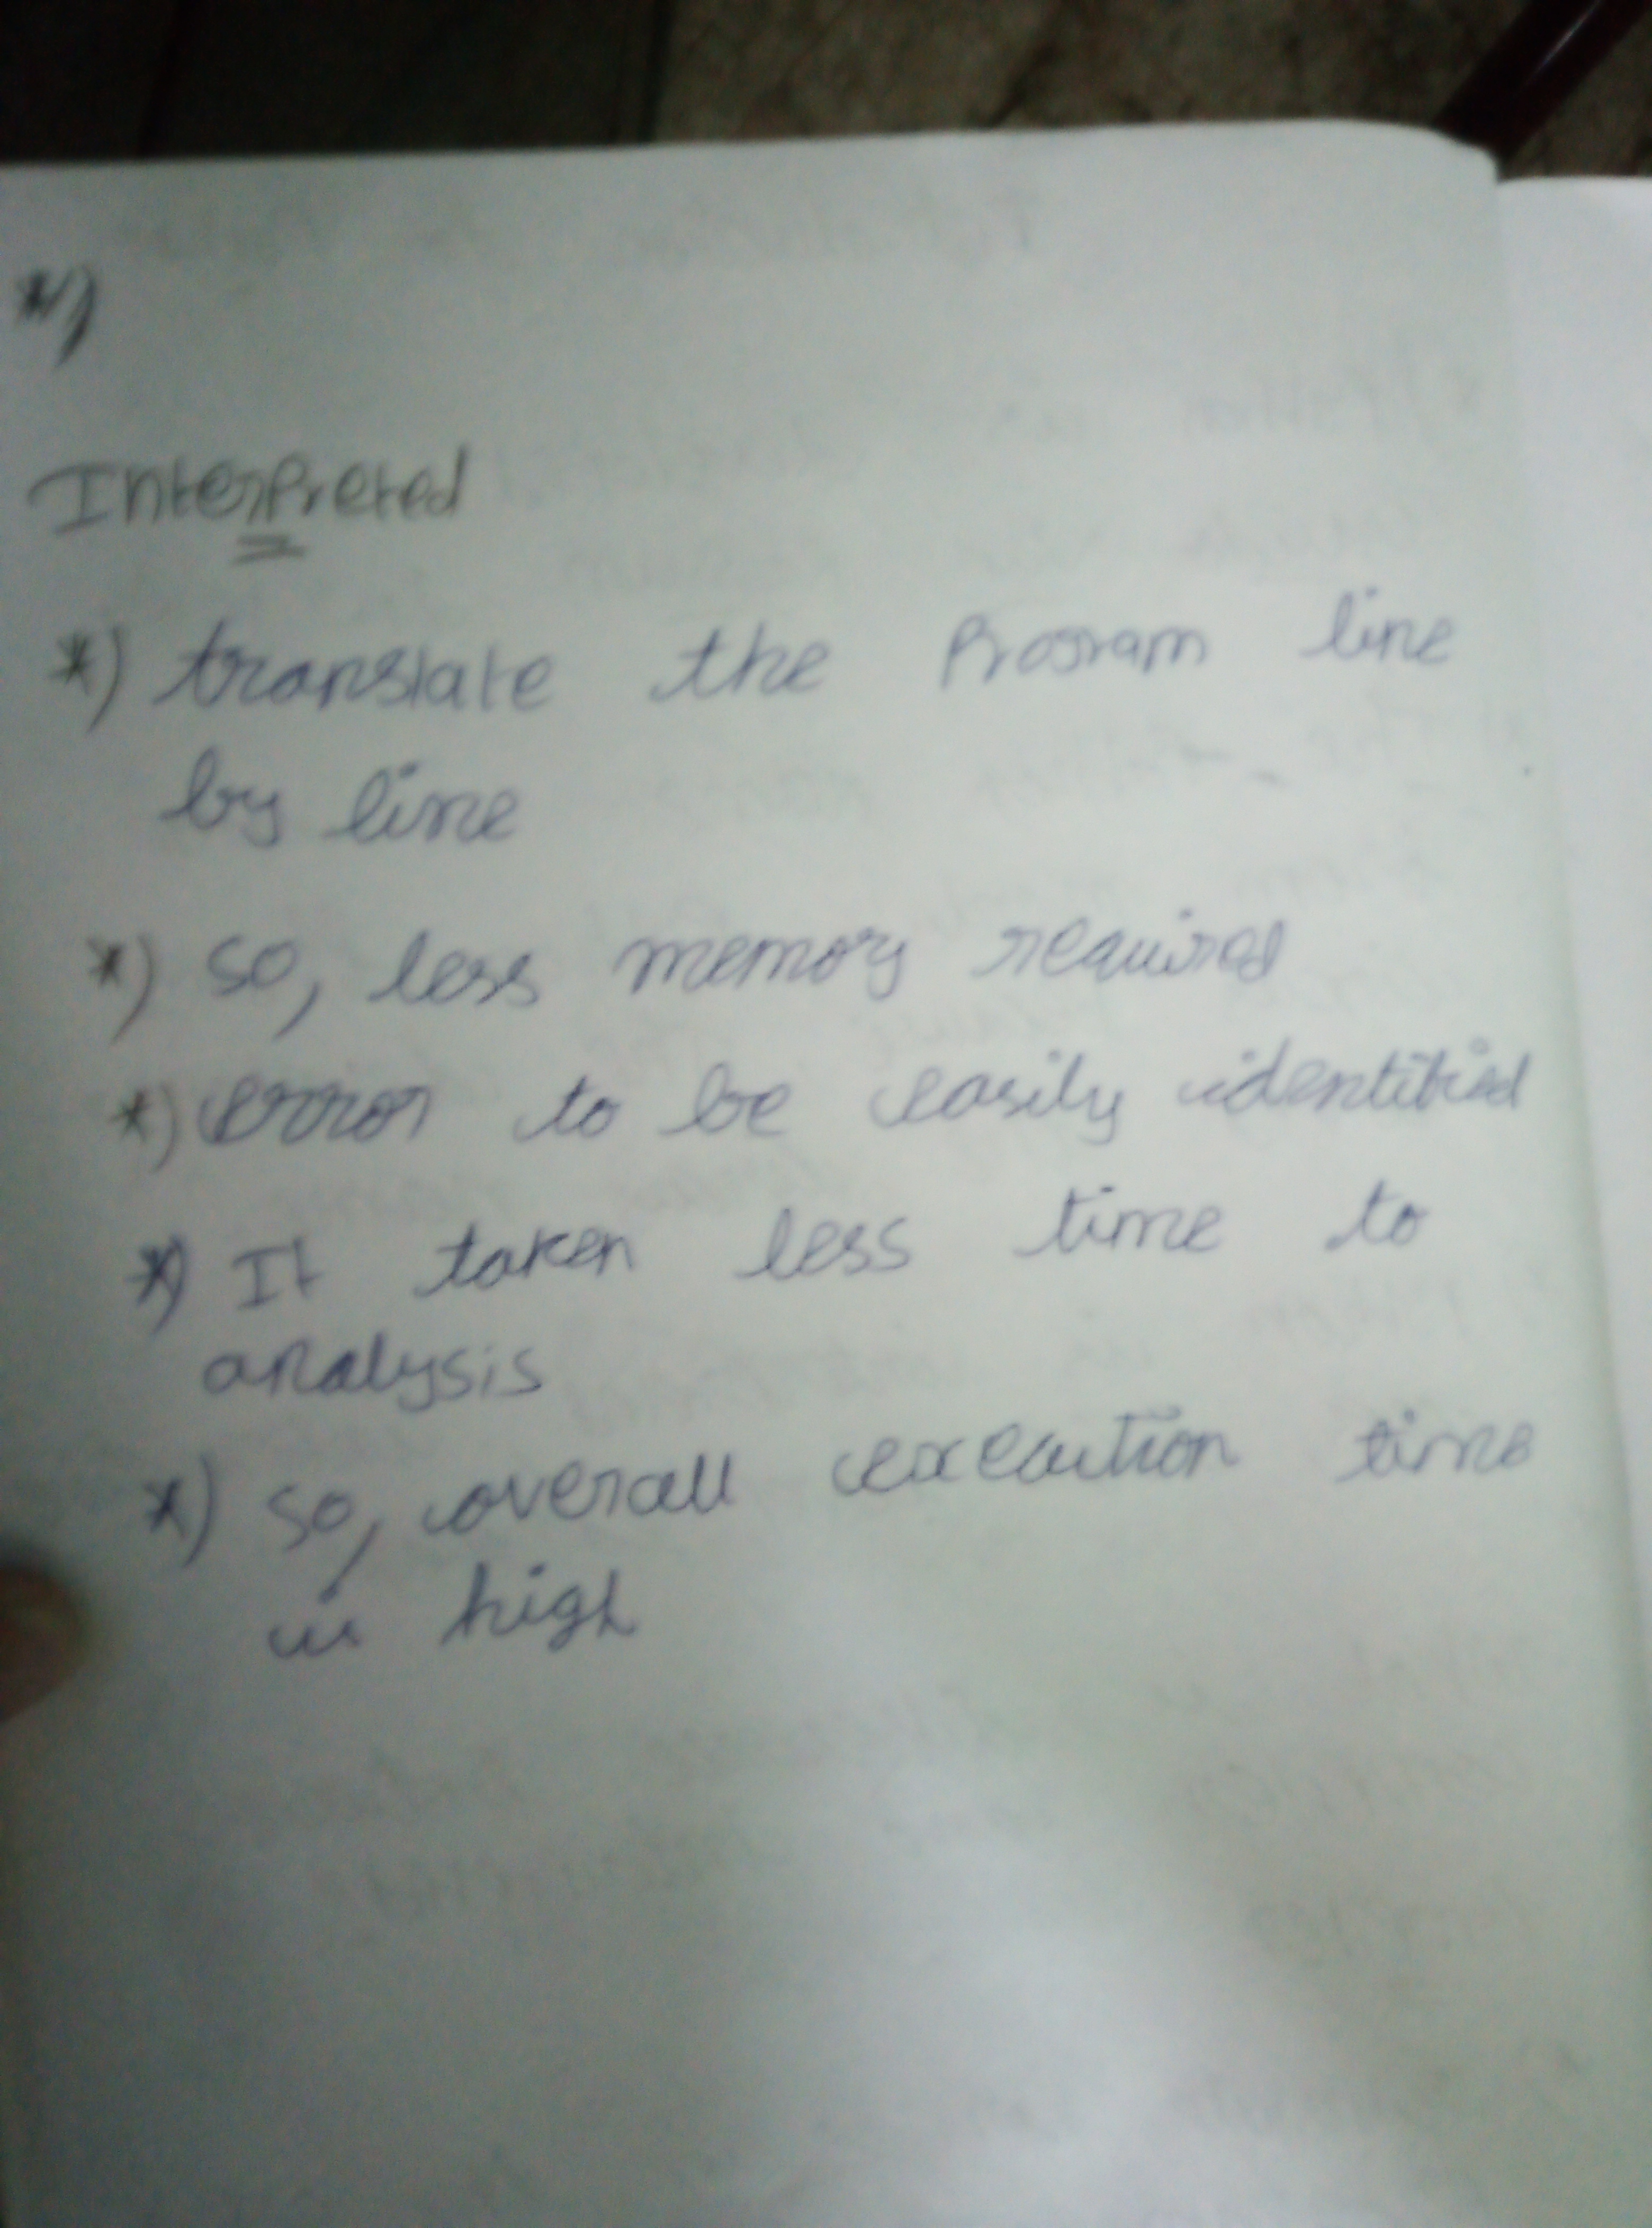 *)
Interpreted
*) translate the Program line
by line
*) so, less memory required
*) error to be easily identified
*) It taken less time to
analysis
*) so, overall execution time
is high